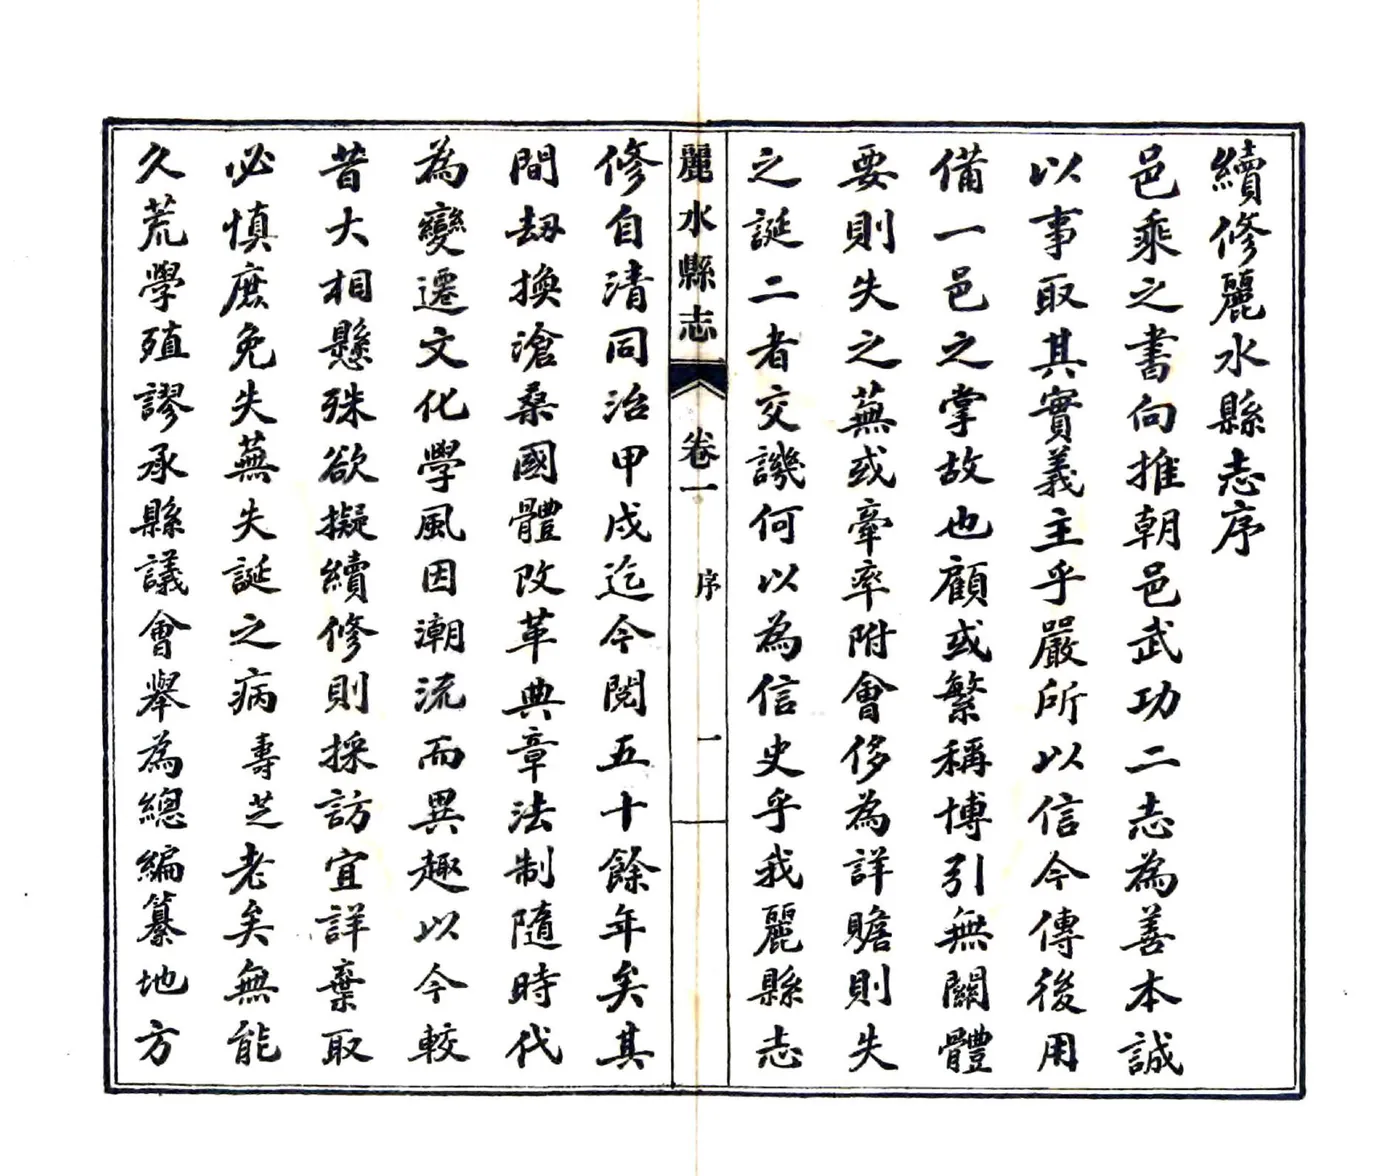 續修麗水縣志序
邑乘之書向推朝邑武功二志為善本誠
以事取其實義主乎嚴所以信今傳後用
備一邑之掌故也顧或繁稱博引無關體
要則失之蕪或牽率附會侈為詳贍則失
之誕二者交譏何以為信史乎我麗縣志
麗水縣志
卷一
序
一
修自清同治甲戌迄今閱五十餘年矣其
間劫換滄桑國體改革典章法制隨時代
為變遷文化學風因潮流而異趣以今較
昔大相懸殊欲擬續修則採訪宜詳棄取
必慎庶免失蕪失誕之病壽芝老矣無能
久荒學殖謬承縣議會舉為總編纂地方